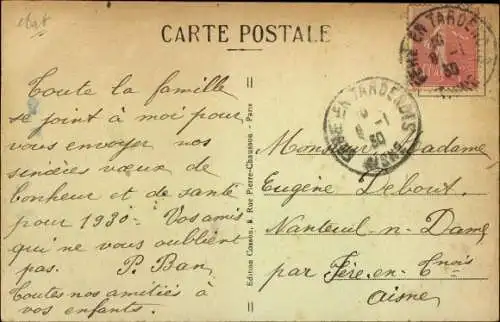 état
CARTE POSTALE
FÈRE-EN-TARDENOIS
AISNE
FÈRE-EN-TARDENOIS
-1
30
AISNE
Toute la famille
se joint à moi pour
vous envoyer nos
sincères vœux de
bonheur et de santé
pour 1930. Vos amis
qui ne vous oublient
pas. P. Ban
Toutes nos amitiés à
vos enfants.
Edition Cosson, 8 Rue Pierre-Chausson - Paris
Monsieur Madame
Eugène Debout
Nanteuil-n-Dame
par Fère-en-Tnois
Aisne